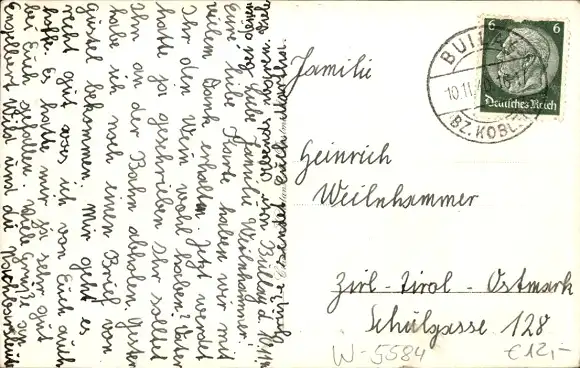 Bullay d. 10.11.41
Meine sg. liebe Familie Weilnhammer!
Eure liebe Karte haben wir mit
vilem Dank erhalten. Jetzt werdet
Ihr den Wein wohl haben? Vater
hatte ja geschrieben Ihr solltet
Ihn an der Bahn abholen. Gestern
habe ich noch einen Brief von
Gustel bekommen. Mir geht es
recht gut was ich von Euch auch
hoffe. Es hatte mir ja sehr gut
bei Euch gefallen. Viele Grüße an
Engelbert Wild und die Nachbarsleute
sendet Euch
Familie
Heinrich
Weilnhammer
Zirl-Tirol-Ostmark
Schulgasse 128
W-5584
€12,-
BULLAY
10.11.41
BZ. KOBLENZ
6 6
Deutsches Reich